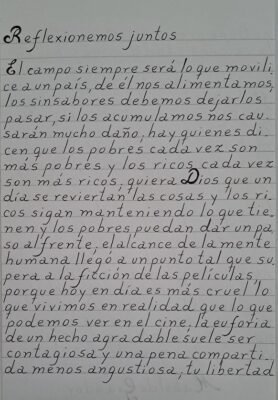 Reflexionemos juntos
El campo siempre será lo que movili
ce a un país, de él nos alimentamos,
los sinsabores debemos dejarlos
pasar, si los acumulamos nos cau-
sarán mucho daño, hay quienes di-
cen que los pobres cada vez son
más pobres y los ricos cada vez
son más ricos, quiera Dios que un
día se reviertan las cosas y los ri-
cos sigan manteniendo lo que tie-
nen y los pobres puedan dar un pa-
so al frente, el alcance de la mente
humana llegó a un punto tal que su-
pera a la fitción de las películas,
porque hoy en día es más cruel lo
que vivimos en realidad que lo que
podemos ver en el cine, la euforia
de un hecho agradable suele ser
contagiosa y una pena comparti-
da menos angustiosa, tu libertad